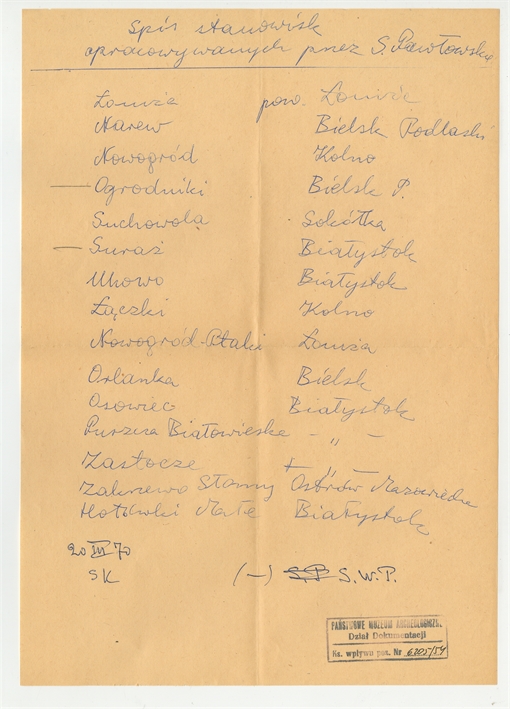 Spis stanowisk
opracowywanych przez S. Pawłowską
Łomża pow. Łomża
Narew Bielsk Podlaski
Nowogród Kolno
— Ogrodniki Bielsk P.
Suchowola Sokółka
— Suraż Białystok
Uhowo Białystok
Łączki Kolno
Nowogród-Ptaki Łomża
Orlanka Bielsk
Osowiec Białystok
Puszcza Białowieska – „ –
Zastocze +
Zakrzewo Stamy Ostrów Mazowiecka
Hołówki Małe Białystok
20 III 70
SK (—) S.P S.W.P.
PAŃSTWOWE MUZEUM ARCHEOLOGICZN.
Dział Dokumentacji
Ks. wpływu poz. Nr 6205/54